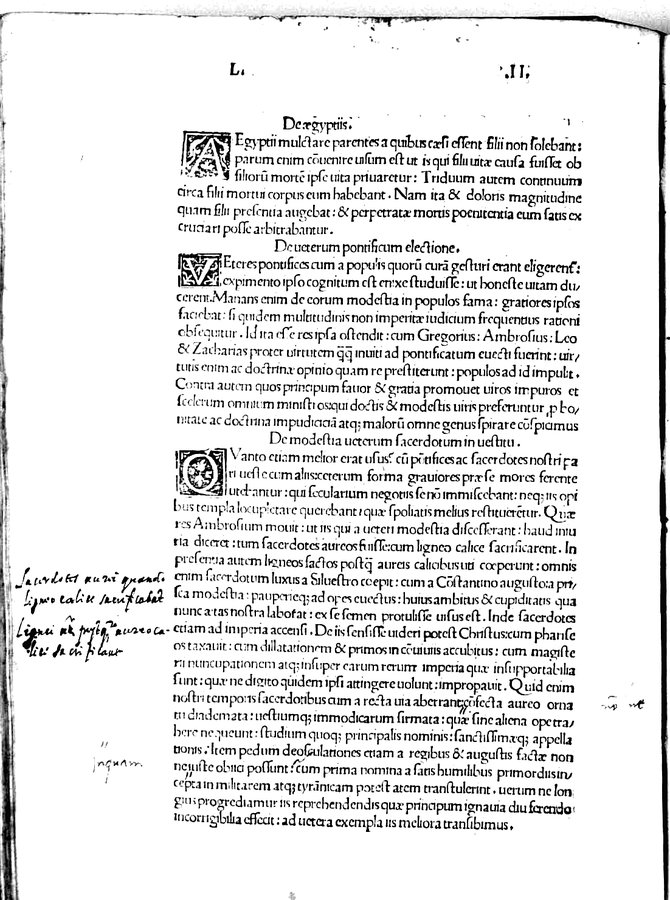 L. .II.
De ægyptiis.
AEgyptii mulctare parentes a quibus cæsi essent filii non solebant:
parum enim cōuenire uisum est ut is qui filii uitæ causa fuisset ob
filiorū mortē ipse uita priuaretur: Triduum autem continuum
circa filii mortui corpus eum habebant. Nam ita & doloris magnitudine
quam filii presentia augebat: & perpetratæ mortis poenitentia eum satis ex
cruciari posse arbitrabantur.
De ueterum pontificum electione.
VEteres pontifices cum a populis quorū curā gesturi erant eligerent:
expimento ipso cognitum est enixe studuisse: ut honeste uitam du/
cerent. Manans enim de eorum modestia in populos fama: gratiores ipsos
faciebat: si quidem multitudinis non imperitæ iudicium frequentius rationi
obsequitur. Id ita esse res ipsa ostendit: cum Gregorius: Ambrosius: Leo
& Zacharias propter uirtutem q̄q̄ inuiti ad pontificatum euecti fuerint: uir/
tutis enim ac doctrinæ opinio quam præstiterunt: populos ad id impulit.
Contra autem quos principum fauor & gratia promouet uiros impuros et
scelerum omnium ministros: qui doctis & modestis uiris preferuntur p bo/
nitate ac doctrina impudiciā atq; malorū omne genus spirare cōspicimus
De modestia ueterum sacerdotum in uestitu.
QVanto etiam melior erat usus: cū pōtifices ac sacerdotes nostri pa
ri ueste cum aliis: ceterum forma grauiores præ se mores ferente
utebantur: qui secularium negotiis se nō immiscebant: neq; iis opi
bus templa locupletare querebant: quæ spoliatis melius restitueretur. Quæ
res Ambrosium mouit: ut iis qui a ueteri modestia discesserant: haud iniu
ria diceret: tum sacerdotes aureos fuisse: cum ligneo calice sacrificarent. In
presentia autem ligneos factos postq̄ aureis calicibus uti coeperunt: omnis
enim sacerdotum luxus a Siluestro coepit: cum a Cōstantino augusto: a pri/
sca modestia: pauperieq; ad opes euectus: huius ambitus & cupiditatis qua
nunc ætas nostra laborat: ex se semen protulisse uisus est. Inde sacerdotes
etiam ad imperia accensi. De iis sensisse uideri potest Christus: cum pharise
os taxauit: cum dillatationem & primos in cōuiuiis accubitus: cum magiste
rii nuncupationem atq; insuper earum rerum imperia quæ insupportabilia
sunt: quæ ne digito quidem ipsi attingere uolunt: improbauit. Quid enim
nostri temporis sacerdotibus cum a recta uia aberrant: cōfecta aureo orna
tu diademata: uestiumq; immodicarum sirmata: quæ sine aliena ope tra/
here nequeunt: studium quoq; principalis nominis: sanctissimæq; appella
tionis. Item pedum deosculationes etiam a regibus & augustis factæ non
ne iuste obiici possunt? cum prima nomina a satis humilibus primordiis in/
cepta in militarem atq; tyrānicam potestatem transtulerint. uerum ne lon
gius progrediamur iis reprehendendis quæ principum ignauia diu ferendo
incorrigibilia effecit: ad uetera exempla iis meliora transibimus.
Sacerdotes aurei quando
ligneo calice sacrificabāt
Lignei
aureo ca-
lice sacrificant
inquam
nō ut